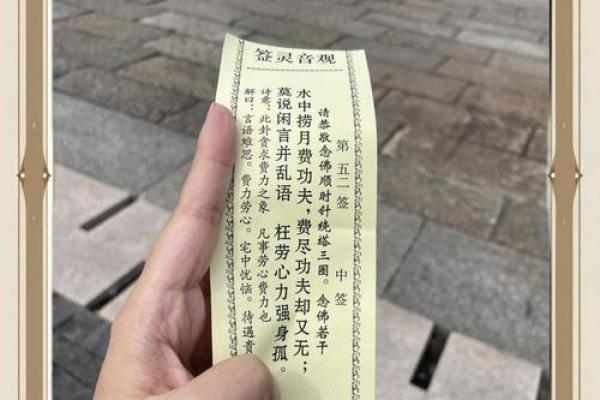 观音灵签
第五二签 中签
请恭敬念佛顺时针绕塔三圈。念佛若干
水中捞月费功夫，费尽功夫却又无；
莫说闲言并乱语 枉劳心力强身孤。
诗意：此卦贪求费力之象 凡事劳心费力也
解曰：言语难思。费力劳心。宅中忧恼。待遇贵